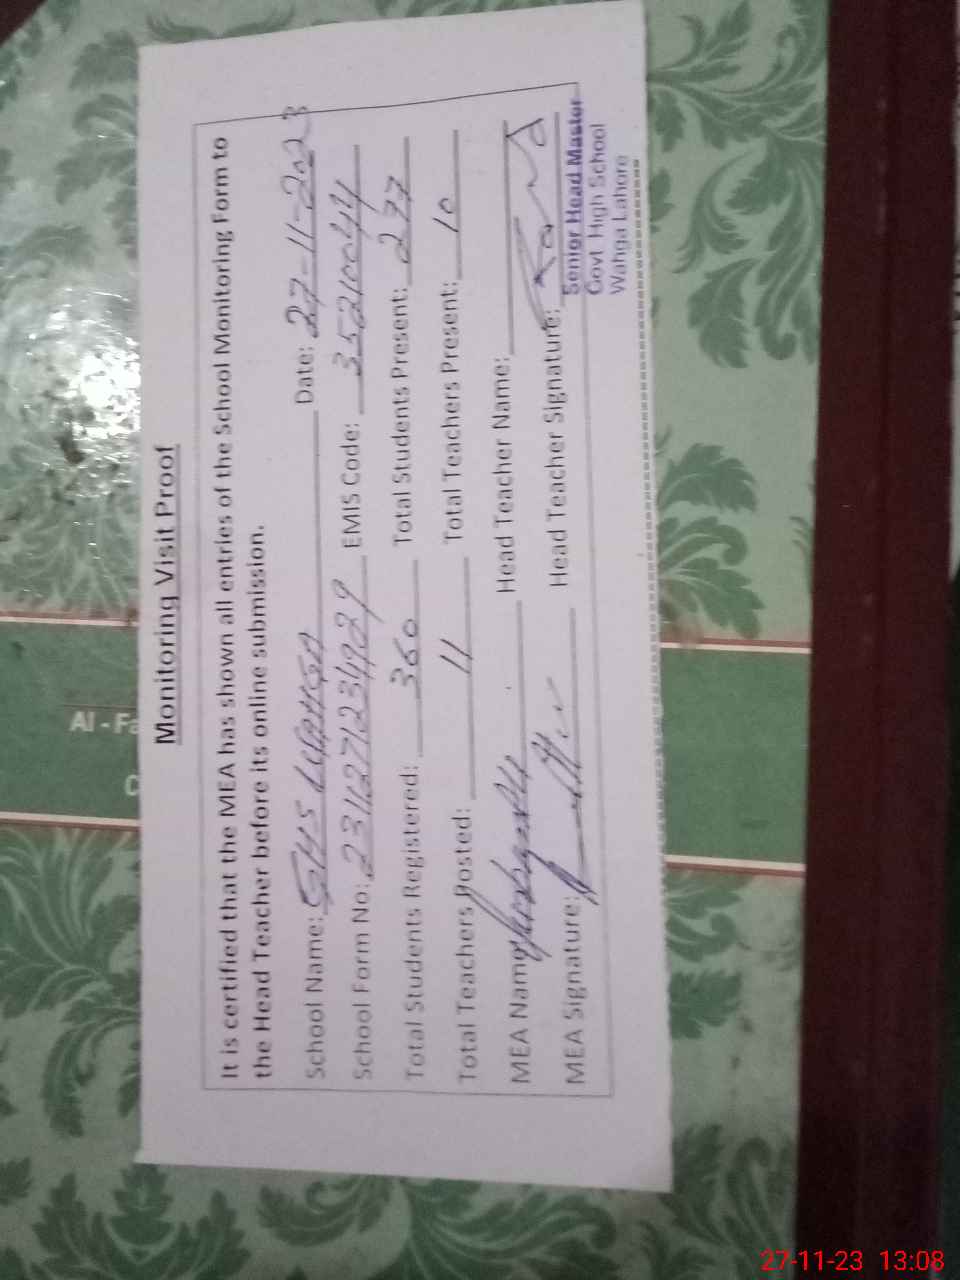 Monitoring Visit Proof
It is certified that the MEA has shown all entries of the School Monitoring Form to
the Head Teacher before its online submission.
School Name: GHS WAHGA Date: 27-11-2023
School Form No: 2311271234929 EMIS Code: 35210044
Total Students Registered: 360 Total Students Present: 277
Total Teachers Posted: 11 Total Teachers Present: 10
MEA Name Head Teacher Name:
MEA Signature: Head Teacher Signature:
Senior Head Master
Govt High School
Wahga Lahore
Al - Fa
C
27-11-23 13:08